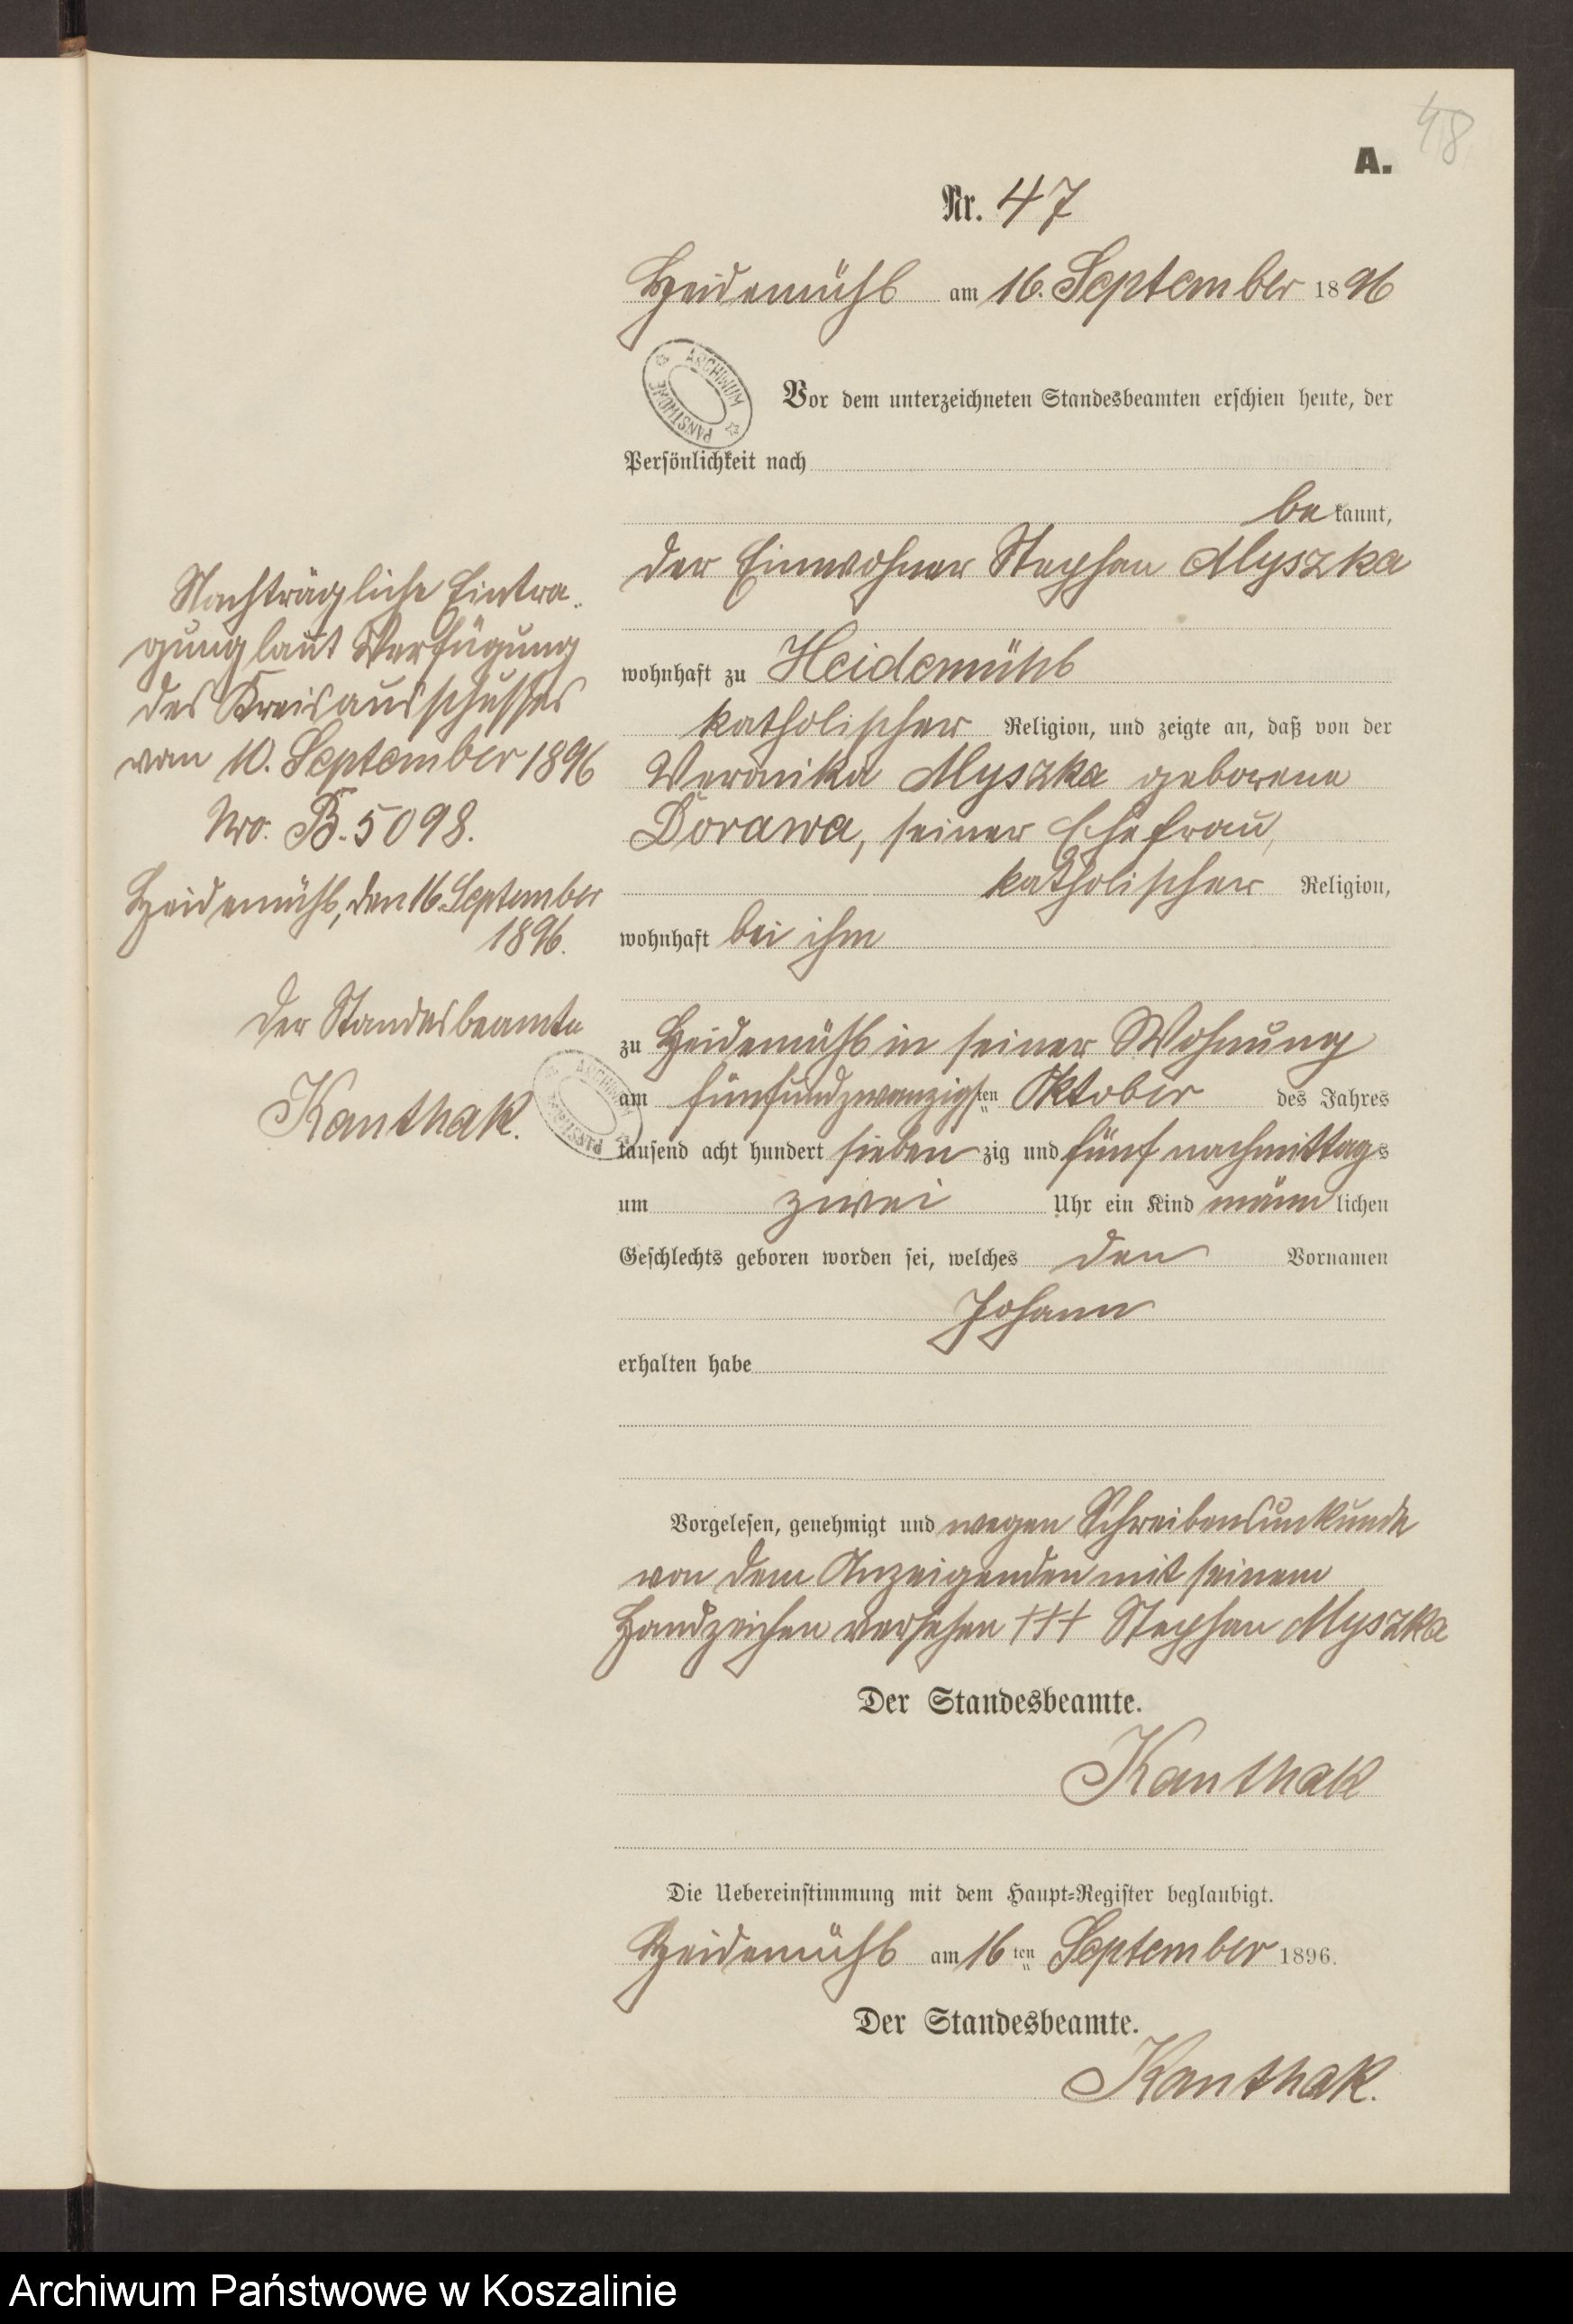 48
A.
Nr. 47
Heidemühl am 16. September 1896
ARCHIWUM PAŃSTWOWE
Vor dem unterzeichneten Standesbeamten erschien heute, der
Persönlichkeit nach
bekannt,
der Einwohner Stephan Myszka
wohnhaft zu Heidemühl
katholischer Religion, und zeigte an, daß von der
Weronika Myszka geborene
Dorawa, seiner Ehefrau,
katholischer Religion,
wohnhaft bei ihm
zu Heidemühl in seiner Wohnung
am fünfundzwanzigsten Oktober des Jahres
tausend acht hundert siebenzig und fünf nachmittags
um zwei Uhr ein Kind männlichen
Geschlechts geboren worden sei, welches den Vornamen
Johann
erhalten habe
Vorgelesen, genehmigt und wegen Schreibensunkunde
von dem Anzeigenden mit seinem
Handzeichen versehen +++ Stephan Myszka
Der Standesbeamte.
Kanthak
Die Uebereinstimmung mit dem Haupt=Register beglaubigt.
Heidemühl am 16ten September 1896.
Der Standesbeamte.
Kanthak.
Nachträgliche Eintra-
gung laut Verfügung
des Kreisausschusses
vom 10. September 1896
Nro. B. 5098.
Heidemühl, den 16. September
1896.
Der Standesbeamte
Kanthak.
ARCHIWUM PAŃSTWOWE
Archiwum Państwowe w Koszalinie